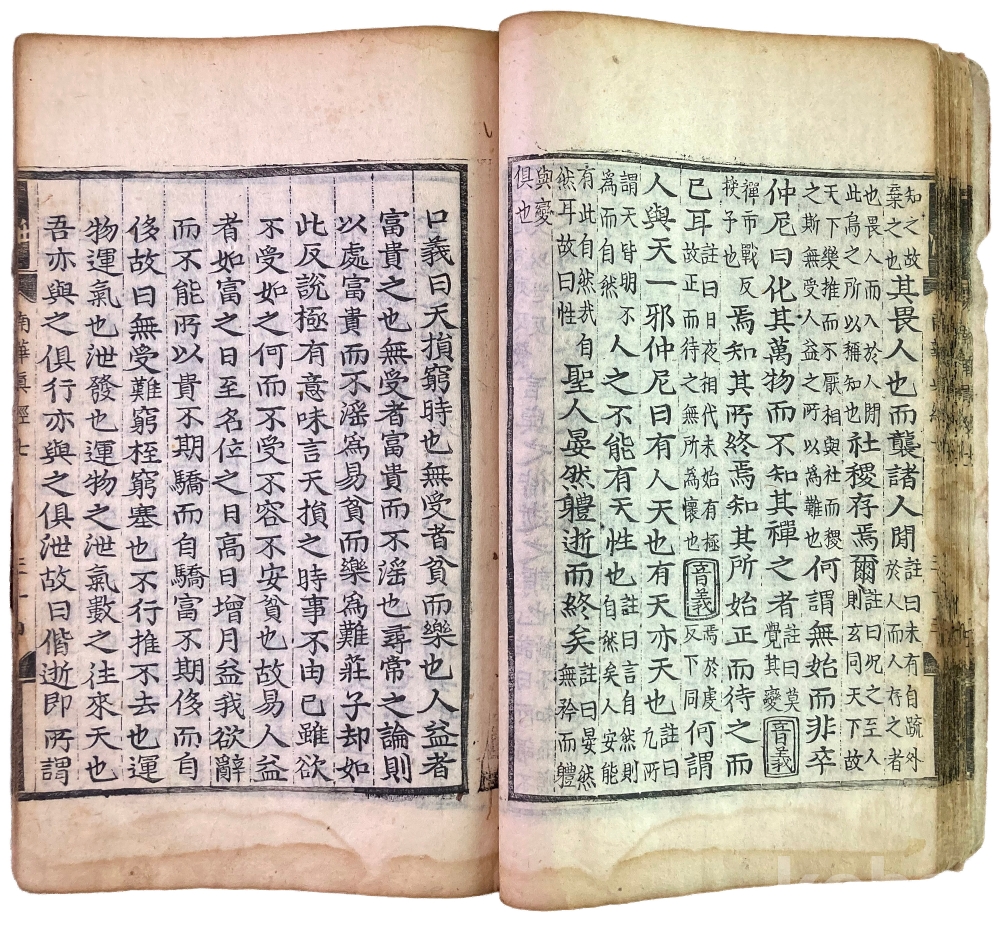 知之故棄之也其畏人也而襲諸人閒註曰未有自疏外於人而人存之者
也畏人而入於人閒此鳥之所以稱知也社稷存焉爾註曰呪之至人則玄同天下故
天下樂推而不厭相與社而稷之斯無受人益之所以為難也何謂無始而非卒
仲尼曰化其萬物而不知其禪之者註曰莫覺其變音義
禪市戰反授予也焉知其所終焉知其所始正而待之而
已耳註曰日夜相代未始有極故正而待之無所為懷也音義焉於虔反下同何謂
人與天一邪仲尼曰有人天也有天亦天也註曰凡所
謂天皆明不為而自然人之不能有天性也註曰言自然則自然矣人安能
有此自然哉自然耳故曰性聖人晏然體逝而終矣註曰晏然無矜而體
與變俱也
口義曰天損窮時也無受者貧而樂也人益者
富貴之也無受者富貴而不滛也尋常之論則
以處富貴而不滛為易貧而樂為難莊子却如
此反說極有意味言天損之時事不由已雖欲
不受如之何而不受不容不安貧也故易人益
者如富之日至名位之日高日增月益我欲辭
而不能所以貴不期驕而自驕富不期侈而自
侈故曰無受難窮桎窮塞也不行推不去也運
物運氣也泄發也運物之泄氣數之往來天也
吾亦與之俱行亦與之俱泄故曰偕逝即所謂
南華眞經七